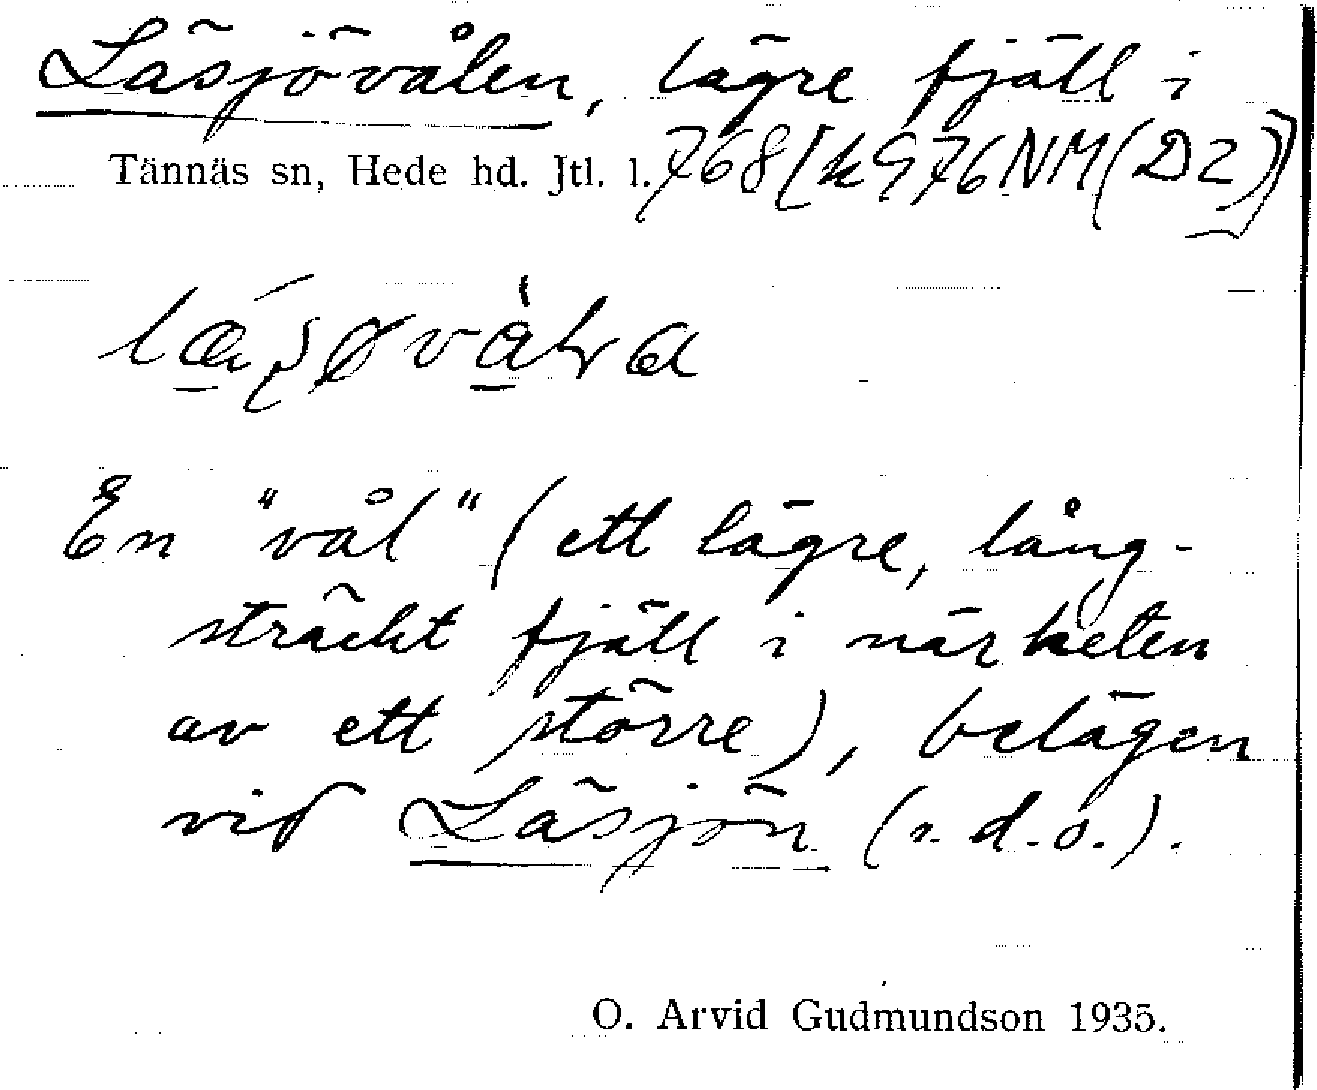 Läsjövålen, lägre fjäll i
Tännäs sn, Hede hd. Jtl. l. 768 [k 976 NM (D2)]
En "vål" (ett lägre, lång-
sträckt fjäll i närheten
av ett större), belägen
vid Läsjön (s. d. o.).
O. Arvid Gudmundson 1935.